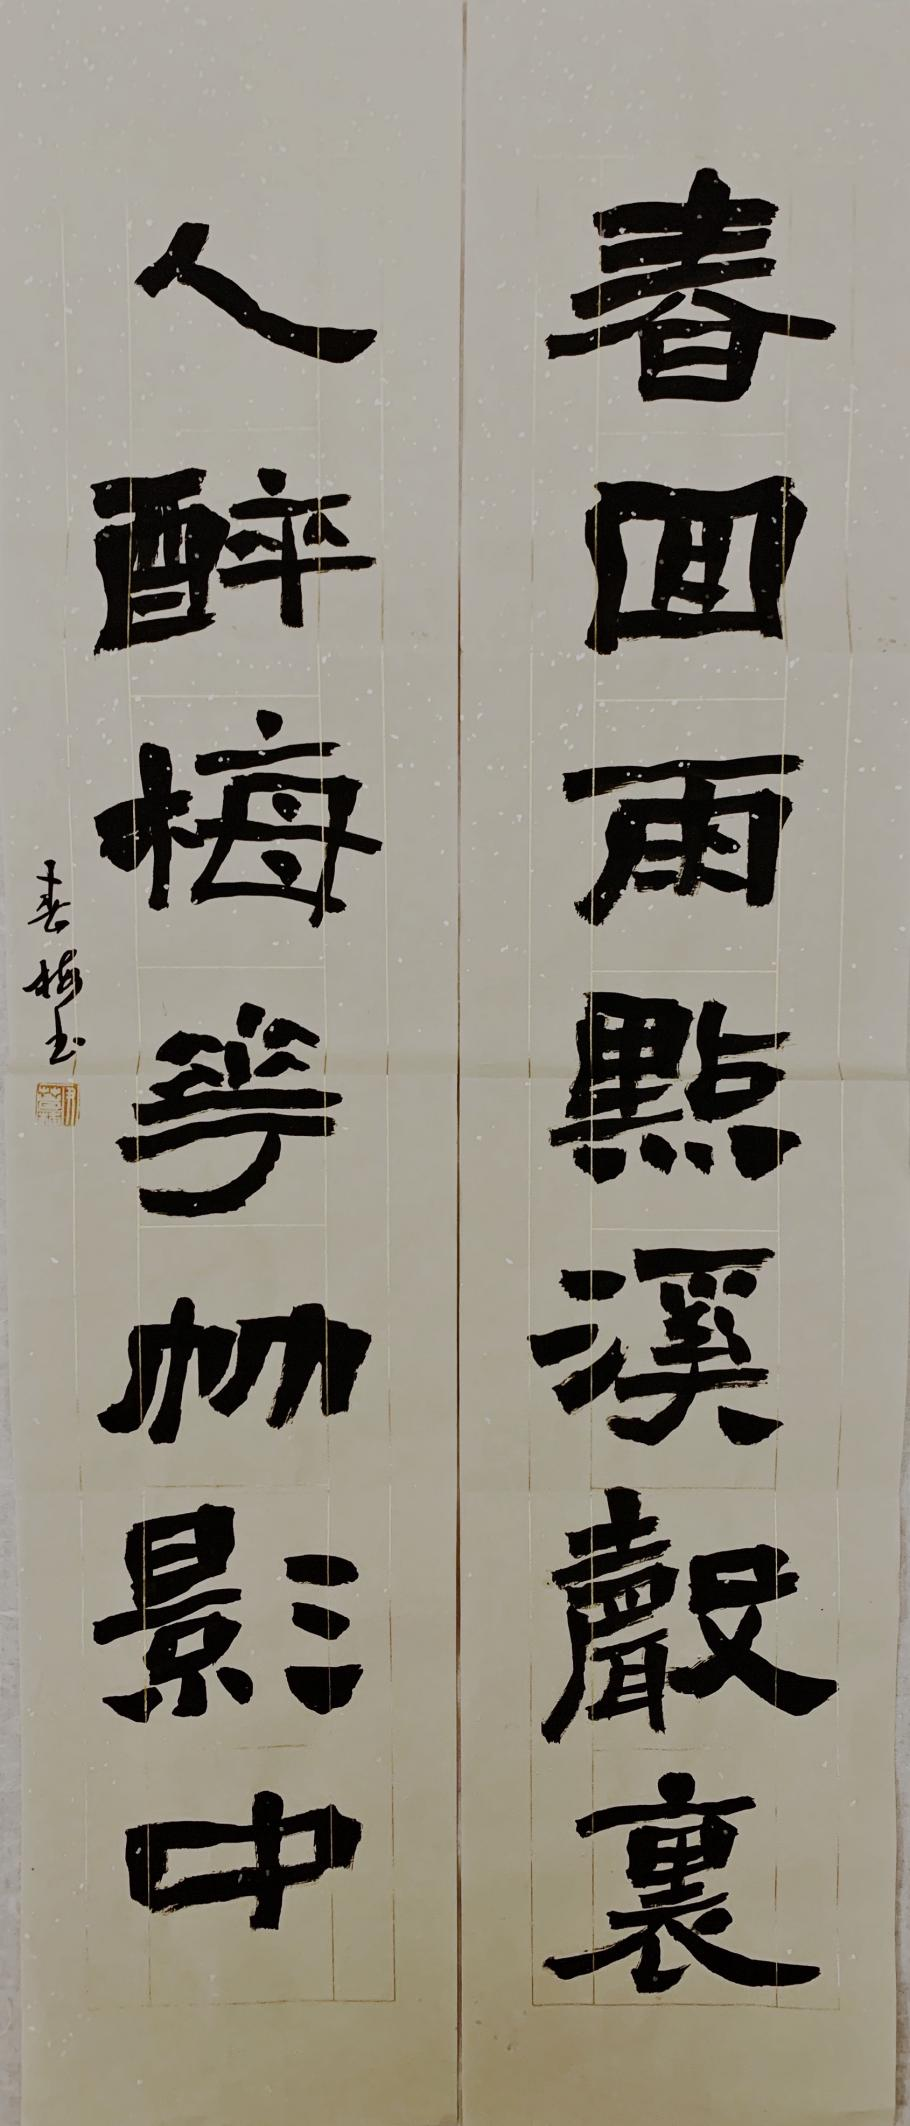 春回雨點溪聲裏
人醉梅花竹影中
春梅书